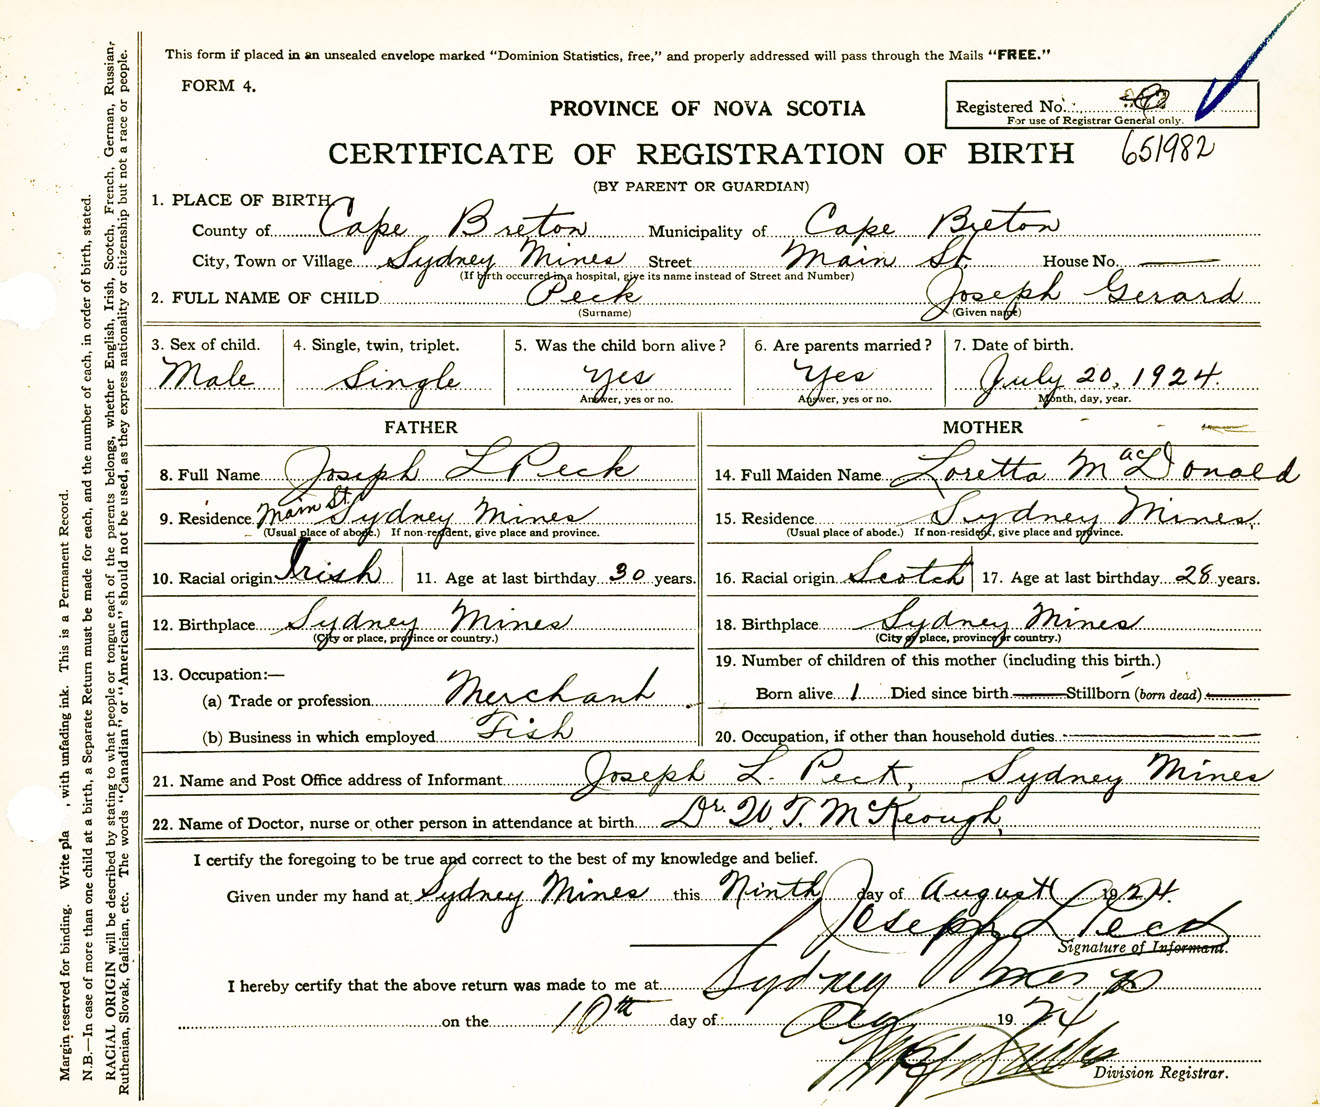 This form if placed in an unsealed envelope marked "Dominion Statistics, free," and properly addressed will pass through the Mails "FREE."
FORM 4.
PROVINCE OF NOVA SCOTIA
Registered No.
For use of Registrar General only.
651982
CERTIFICATE OF REGISTRATION OF BIRTH
(BY PARENT OR GUARDIAN)
1. PLACE OF BIRTH
County of Cape Breton Municipality of Cape Breton
City, Town or Village Sydney Mines Street Main St. House No. —
(If birth occurred in a hospital, give its name instead of Street and Number)
2. FULL NAME OF CHILD Peck Joseph Gerard
(Surname) (Given name)
3. Sex of child. 4. Single, twin, triplet. 5. Was the child born alive? 6. Are parents married? 7. Date of birth.
Male Single Yes Yes July 20, 1924.
Answer, yes or no. Answer, yes or no. Month, day, year.
FATHER MOTHER
8. Full Name Joseph L Peck 14. Full Maiden Name Loretta MacDonald
9. Residence Main St. Sydney Mines 15. Residence Sydney Mines.
(Usual place of abode.) If non-resident, give place and province. (Usual place of abode.) If non-resident, give place and province.
10. Racial origin Irish 11. Age at last birthday 30 years. 16. Racial origin Scotch 17. Age at last birthday 28 years.
12. Birthplace Sydney Mines 18. Birthplace Sydney Mines
(City or place, province or country.) (City or place, province or country.)
13. Occupation:— 19. Number of children of this mother (including this birth.)
(a) Trade or profession Merchant Born alive 1 Died since birth — Stillborn (born dead) —
(b) Business in which employed Fish 20. Occupation, if other than household duties —
21. Name and Post Office address of Informant Joseph L. Peck, Sydney Mines
22. Name of Doctor, nurse or other person in attendance at birth Dr. W. T. McKeough,
I certify the foregoing to be true and correct to the best of my knowledge and belief.
Given under my hand at Sydney Mines this Ninth day of August 1924.
Joseph L Peck
Signature of Informant.
I hereby certify that the above return was made to me at Sydney Mines
on the 10th day of Aug 1924
Division Registrar.
Margin reserved for binding. Write pla , with unfading ink. This is a Permanent Record.
N.B.—In case of more than one child at a birth, a Separate Return must be made for each, and the number of each, in order of birth, stated.
RACIAL ORIGIN will be described by stating to what people or tongue each of the parents belongs, whether English, Irish, Scotch, French, German, Russian,
Ruthenian, Slovak, Galician, etc. The words "Canadian" or "American" should not be used, as they express nationality or citizenship but not a race or people.